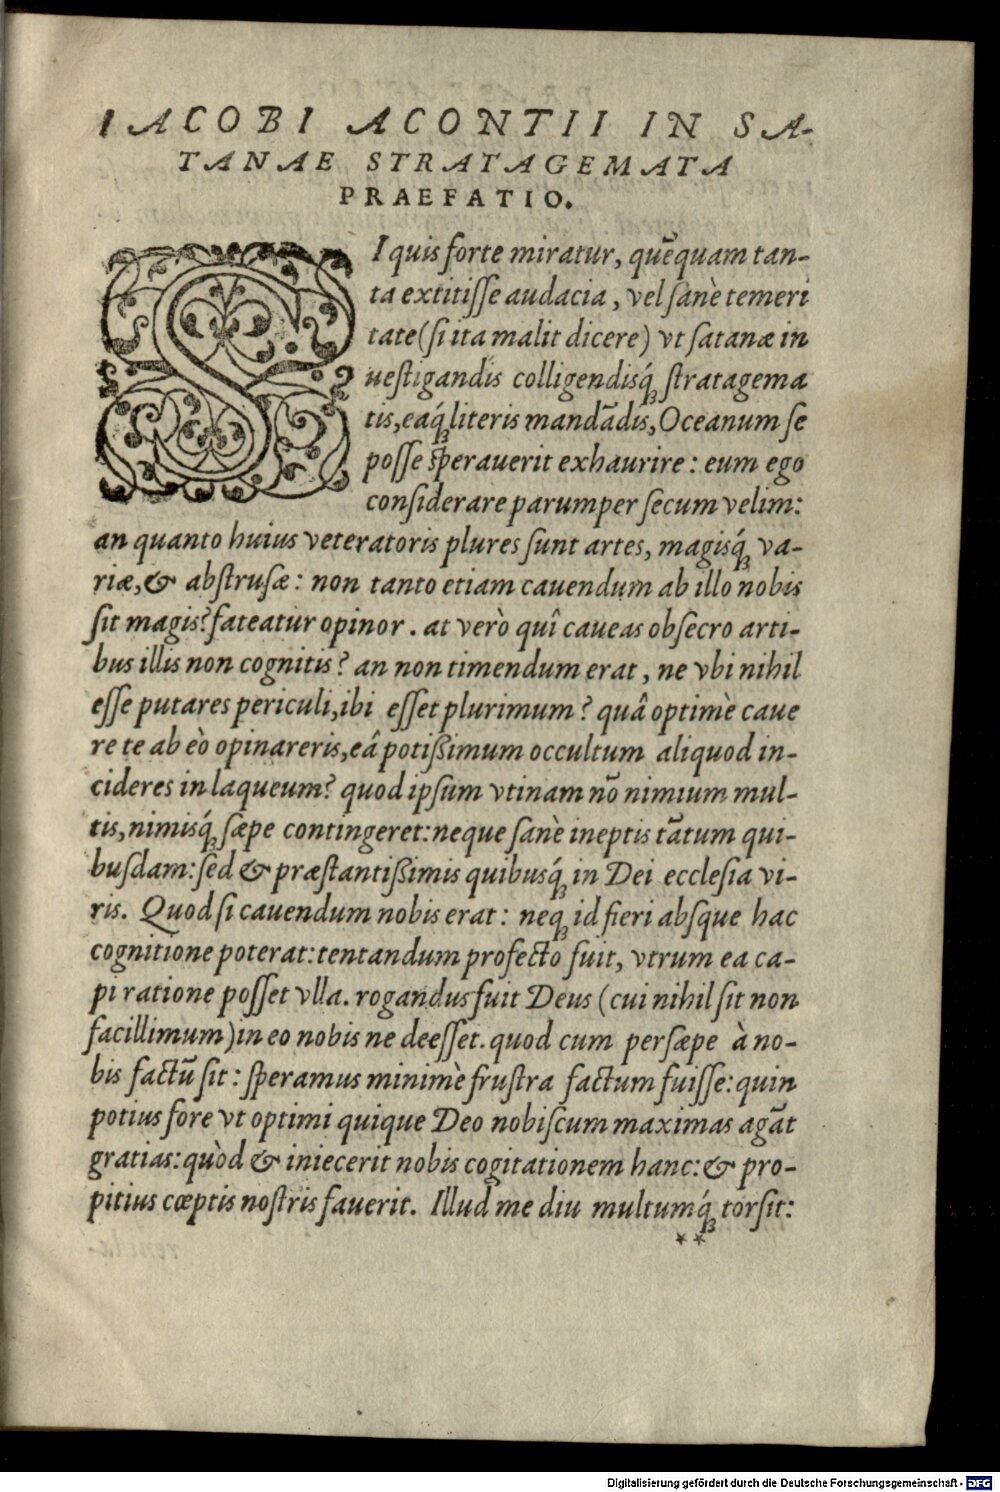 IACOBI ACONTII IN SA-
TANAE STRATAGEMATA
PRAEFATIO.
SI quis forte miratur, quēquam tan-
ta extitisse audacia, vel sanè temeri
tate (si ita malit dicere) vt satanæ in
uestigandis colligendisq́; stratagema
tis, eaq́; literis mandādis, Oceanum se
posse sperauerit exhaurire: eum ego
considerare parumper secum velim:
an quanto huius veteratoris plures sunt artes, magisq́; va-
riæ, & abstrusæ: non tanto etiam cauendum ab illo nobis
sit magis? fateatur opinor. at verò quî caueas obsecro arti-
bus illis non cognitis? an non timendum erat, ne vbi nihil
esse putares periculi, ibi esset plurimum? quâ optimè caue
re te ab eò opinareris, eâ potißimum occultum aliquod in-
cideres in laqueum? quod ipsum vtinam nō nimium mul-
tis, nimisq́; sæpe contingeret: neque sanè ineptis tātum qui-
busdam: sed & præstantißimis quibusq́; in Dei ecclesia vi-
ris. Quod si cauendum nobis erat: neq; id fieri absque hac
cognitione poterat: tentandum profecto fuit, vtrum ea ca-
pi ratione posset vlla. rogandus fuit Deus (cui nihil sit non
facillimum) in eo nobis ne deesset. quod cum persæpe à no-
bis factū sit: speramus minimè frustra factum fuisse: quin
potius fore vt optimi quique Deo nobiscum maximas agāt
gratias: quòd & iniecerit nobis cogitationem hanc: & pro-
pitius cœptis nostris fauerit. Illud me diu multumq́; torsit:
**
Digitalisierung gefördert durch die Deutsche Forschungsgemeinschaft - DFG